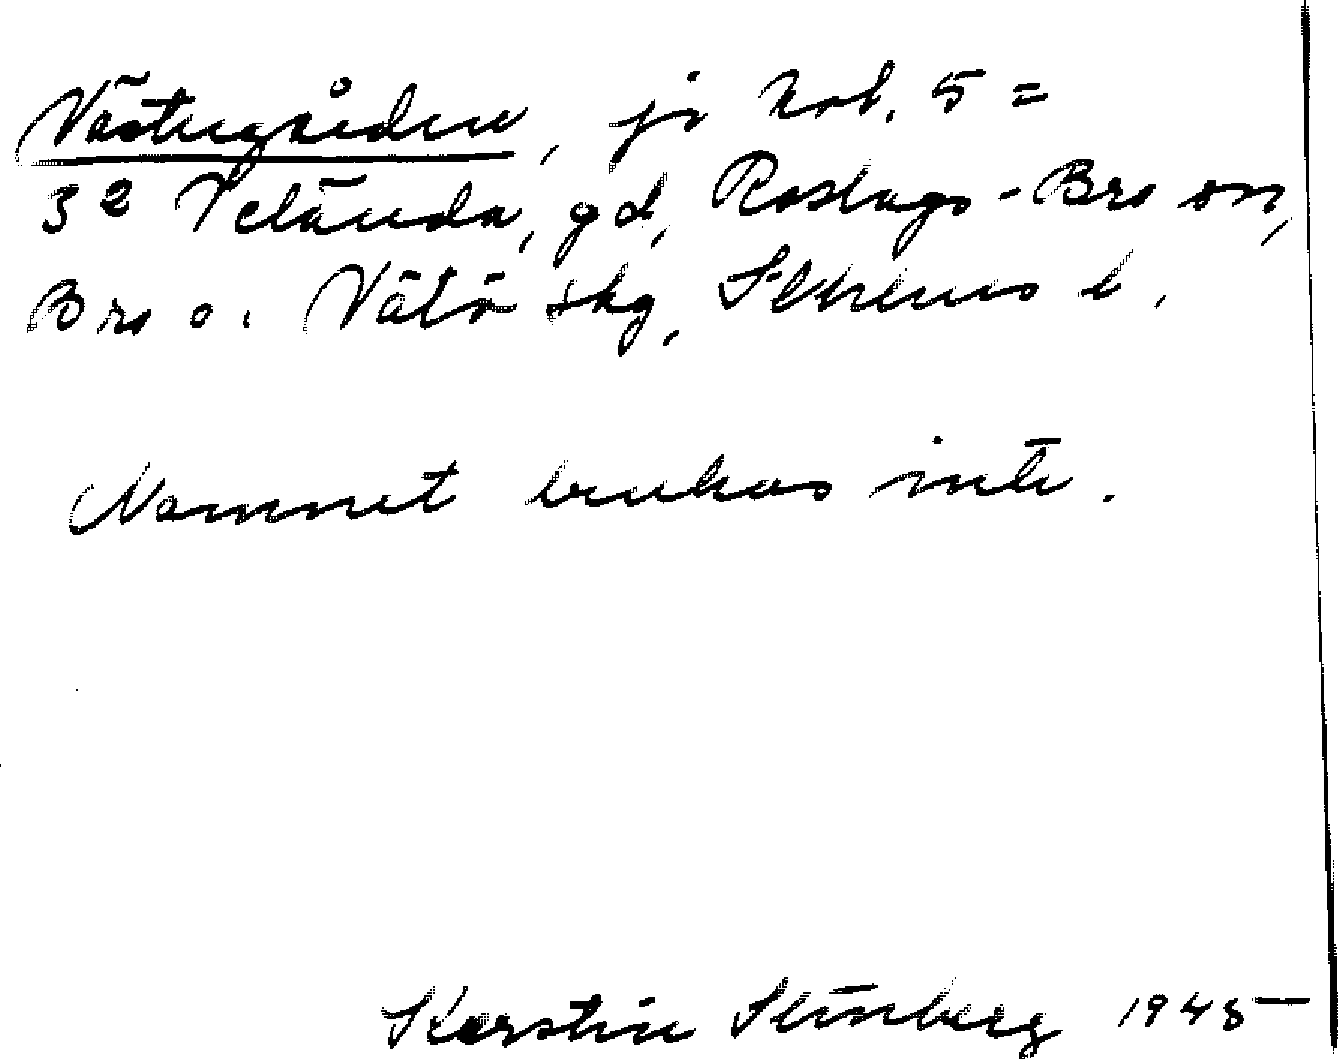 Västergården, jr kob. 5 =
3² Veländа, gd, Roslags-Bro sn,
Bro o. Vätö skg, Sthlms l.
Namnet brukas inte.
Kerstin Stenberg 1945